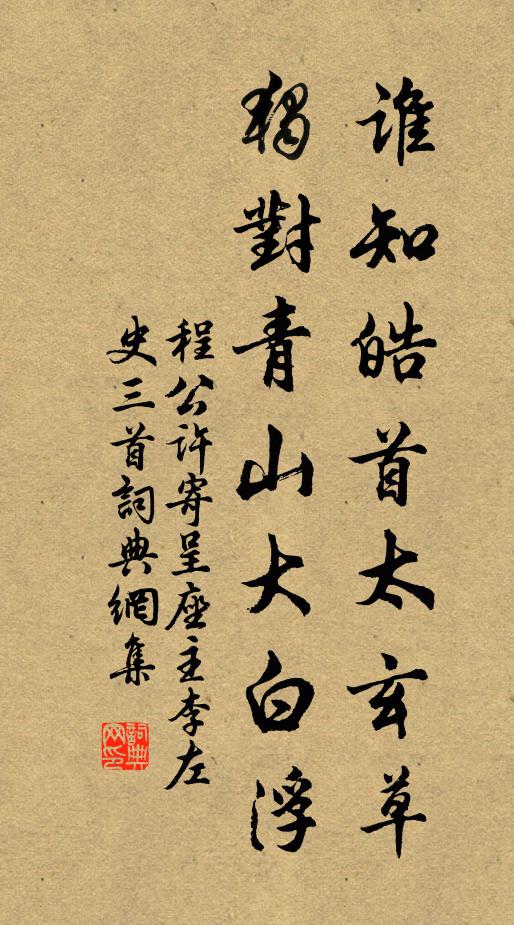 誰知皓首太玄草
獨對青山大白浮
程公許寄呈座主李左
史三首詞典網集
詞典
网印